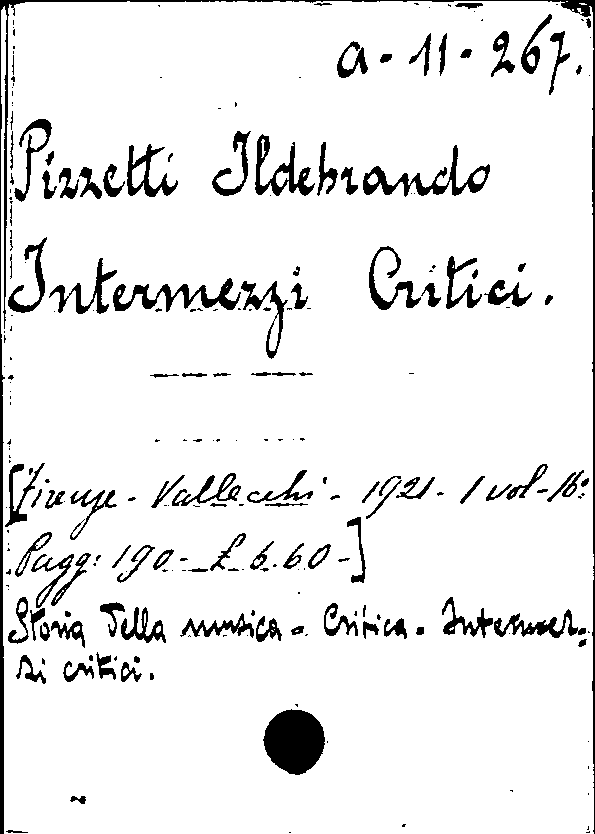 a - 11 - 267.
Pizzetti Ildebrando
Intermezzi Critici.
[Firenze - Vallecchi - 1921 - 1 vol - 16º
Pagg: 190 - £ 6.60 - ]
Storia della musica - Critica - Intermez=
zi critici.